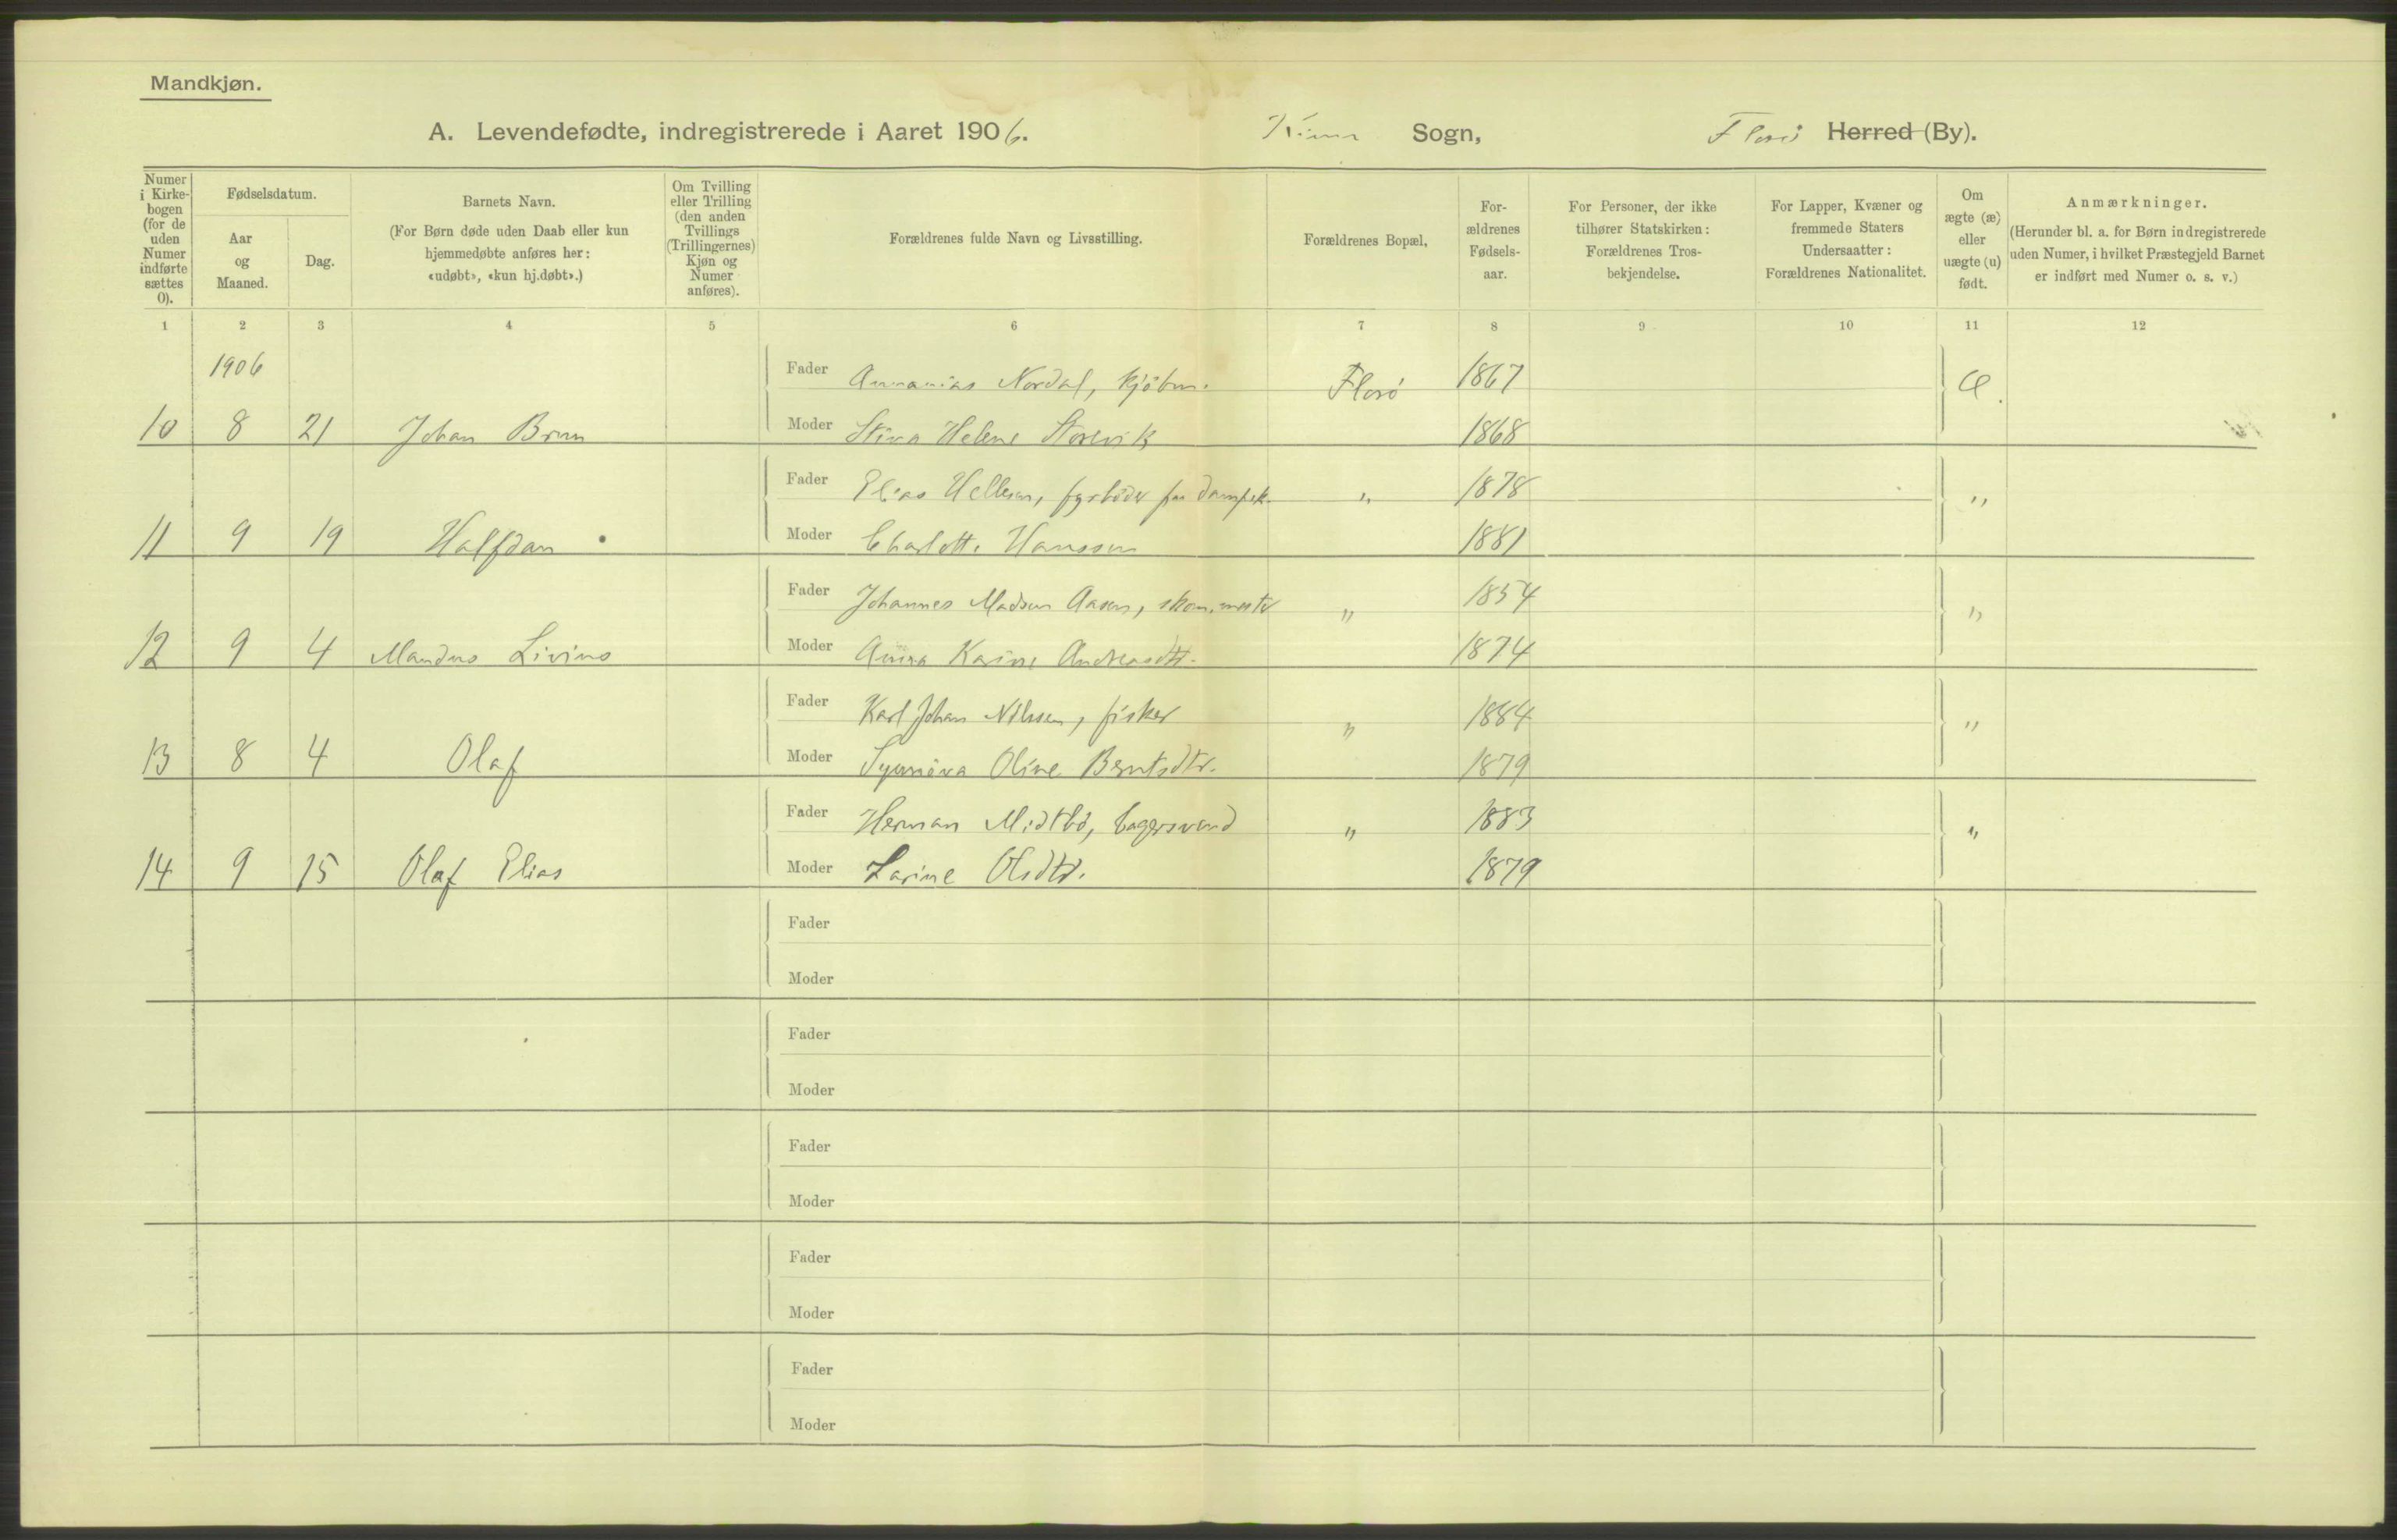 Mandkjøn.
A. Levendefødte, indregistrerede i Aaret 1906. Kinn Sogn, Florö Herred (By).
Numer i Kirkebogen (for de uden Numer indførte sættes 0).
Fødselsdatum.
Aar og Maaned.
Dag.
Barnets Navn.
(For Børn døde uden Daab eller kun hjemmedøbte anføres her: «udøbt», «kun hj.døbt».)
Om Tvilling eller Trilling (den anden Tvillings (Trillingernes) Kjøn og Numer anføres).
Forældrenes fulde Navn og Livsstilling.
Forældrenes Bopæl,
Forældrenes Fødselsaar.
For Personer, der ikke tilhører Statskirken: Forældrenes Trosbekjendelse.
For Lapper, Kvæner og fremmede Staters Undersaatter: Forældrenes Nationalitet.
Om ægte (æ) eller uægte (u) født.
Anmærkninger.
(Herunder bl. a. for Børn indregistrerede uden Numer, i hvilket Præstegjeld Barnet er indført med Numer o. s. v.)
1 2 3 4 5 6 7 8 9 10 11 12
1906 Fader Annanias Nordal, kjöbm. Florö 1867 Æ.
10 8 21 Johan Brun Moder Stina Helene Storevik 1868
Fader Elias Hellesen, fyrböder paa dampsk. " 1878 "
11 9 19 Halfdan Moder Charlotte Hanssen 1881
Fader Johannes Madsen Aasen, skom.mester " 1854 "
12 9 4 Mandus Livius Moder Anna Karine Andreasdtr. 1874
Fader Karl Johan Nilssen, fisker " 1884 "
13 8 4 Olaf Moder Synnöva Oline Berntsdtr. 1879
Fader Herman Midtbö, bagersvend " 1883 "
14 9 15 Olaf Elias Moder Larine Olsdtr. 1879
Fader
Moder
Fader
Moder
Fader
Moder
Fader
Moder
Fader
Moder